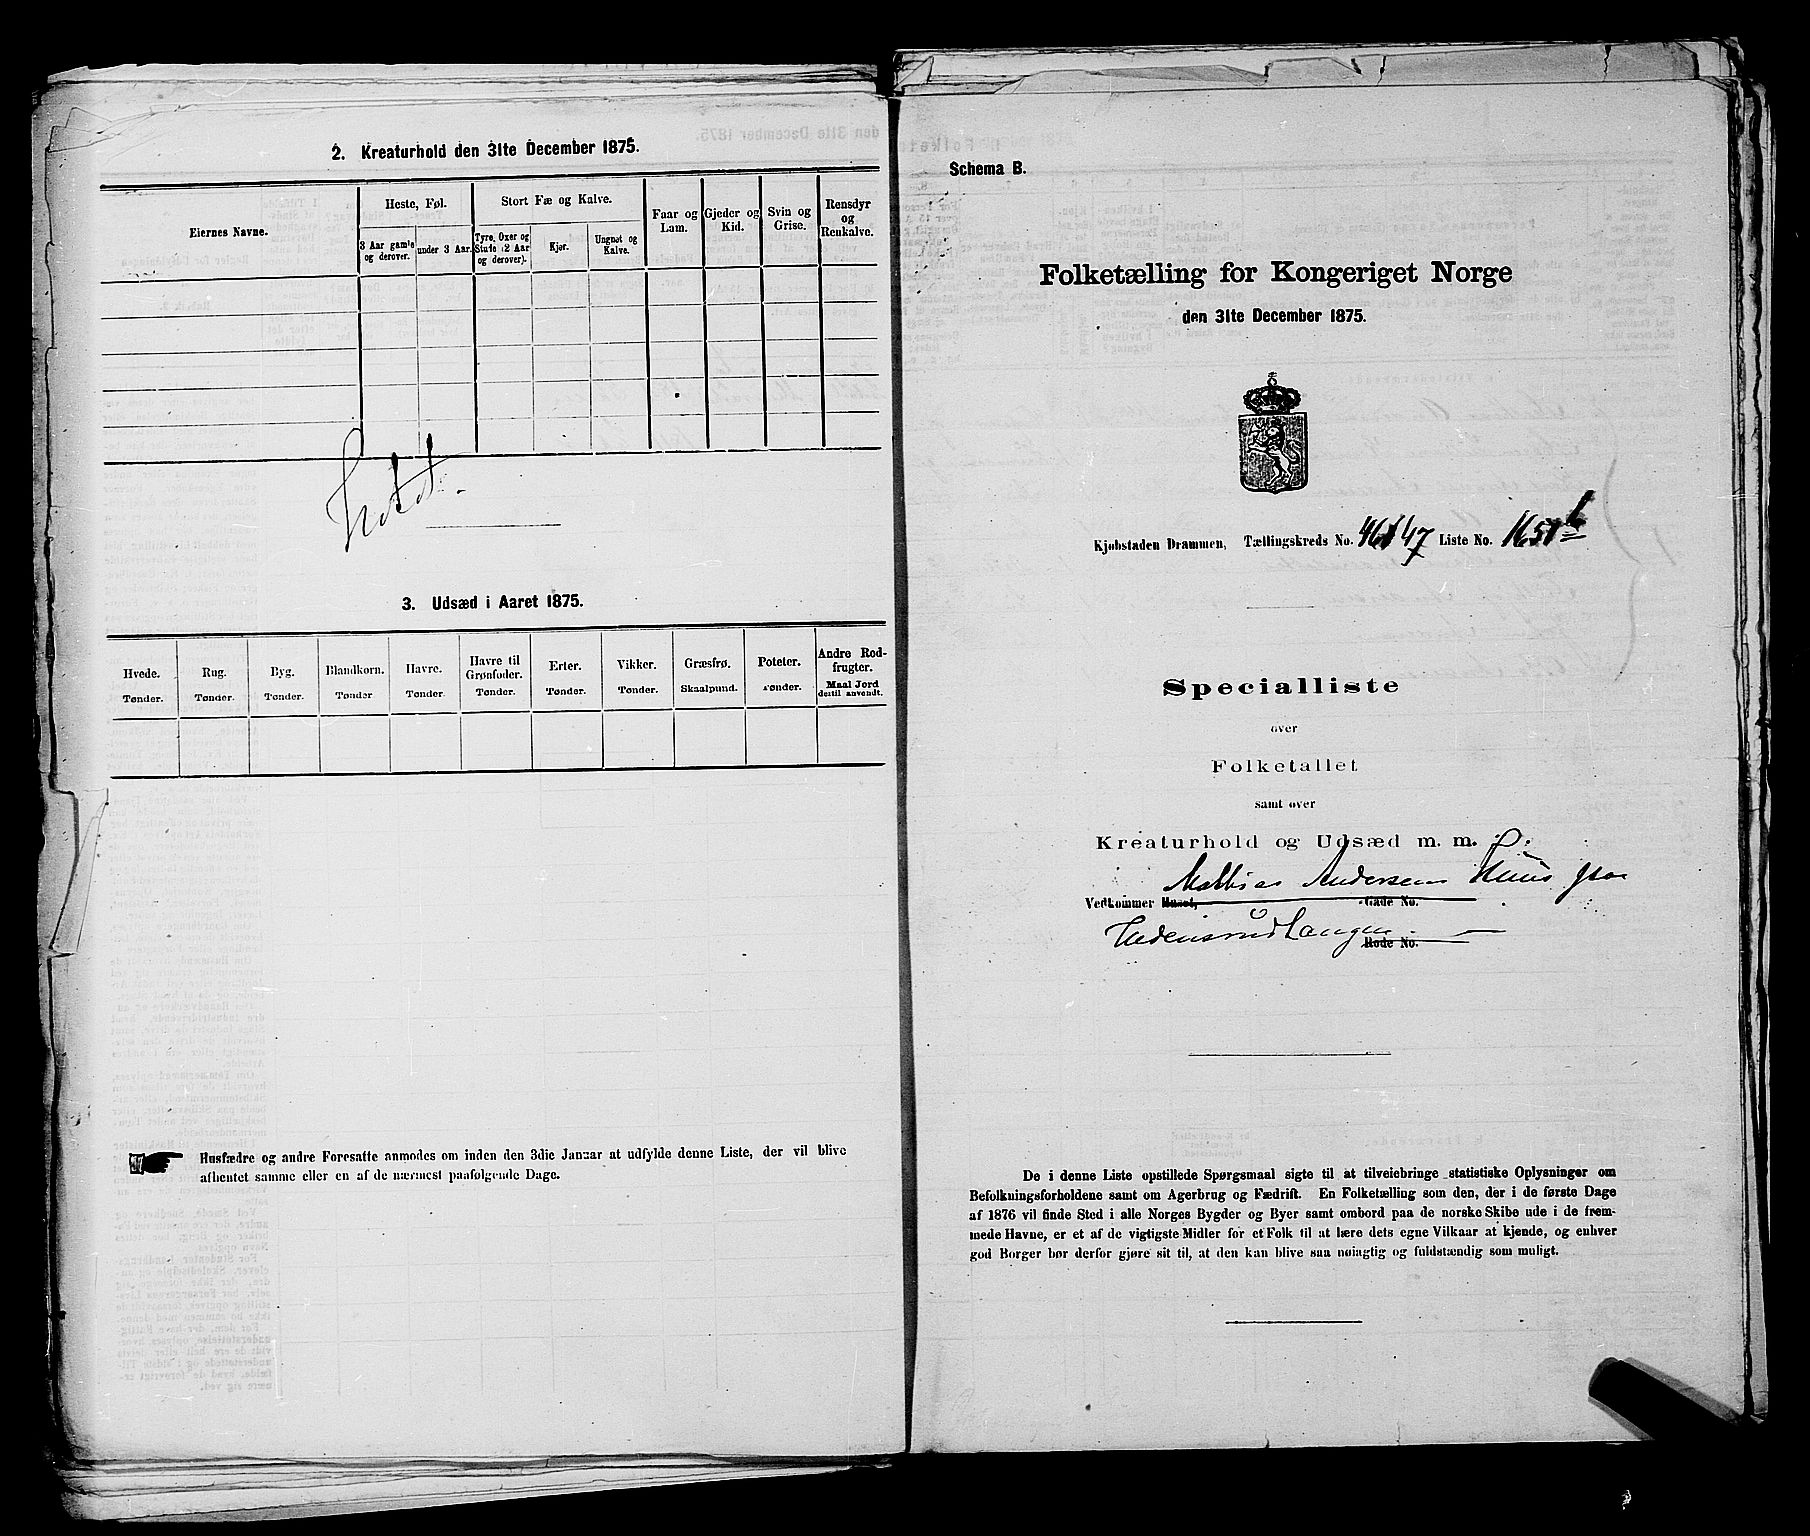 2. Kreaturhold den 31te December 1875.
Eiernes Navne.
Heste, Føl.
3 Aar gamle og derover.
under 3 Aar.
Stort Fæ og Kalve.
Tyre, Oxer og Stude (2 Aar og derover).
Kjør.
Ungnøt og Kalve.
Faar og Lam.
Gjeder og Kid.
Svin og Grise.
Rensdyr og Renkalve.
3. Udsæd i Aaret 1875.
Hvede. Tønder.
Rug. Tønder.
Byg. Tønder.
Blandkorn. Tønder
Havre. Tønder.
Havre til Grønfoder. Tønder.
Erter. Tønder.
Vikker. Tønder.
Græsfrø. Skaalpund.
Poteter. Tønder.
Andre Rodfrugter. Maal Jord dertil anvendt.
Husfædre og andre Foresatte anmodes om inden den 3die Januar at udfylde denne Liste, der vil blive
afhentet samme eller en af de nærmest paafølgende Dage.
Schema B.
Folketælling for Kongeriget Norge
den 31te December 1875.
Kjøbstaden Drammen, Tællingskreds No. 46/47 Liste No. 1651b
Specialliste
over
Folketallet
samt over
Kreaturhold og Udsæd m. m.
Mathias Andersens Huus paa
Vedkommer Huset, Gade No.
Rode No.
De i denne Liste opstillede Spørgsmaal sigte til at tilveiebringe statistiske Oplysninger om
Befolkningsforholdene samt om Agerbrug og Fædrift. En Folketælling som den, der i de første Dage
af 1876 vil finde Sted i alle Norges Bygder og Byer samt ombord paa de norske Skibe ude i de frem-
mede Havne, er et af de vigtigste Midler for et Folk til at lære dets egne Vilkaar at kjende, og enhver
god Borger bør derfor gjøre sit til, at den kan blive saa nøiagtig og fuldstændig som muligt.